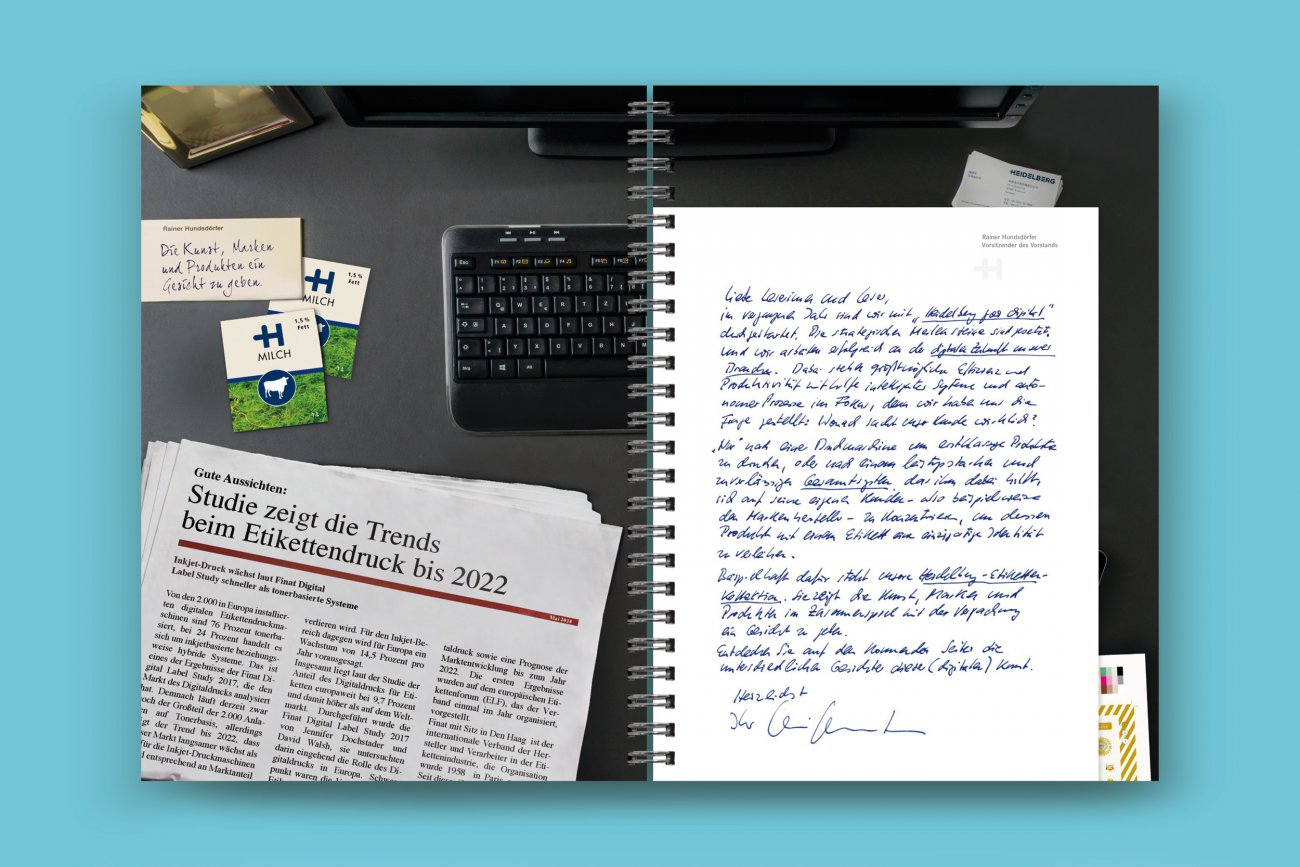 Rainer Hundsdörfer
Die Kunst, Marken
und Produkten ein
Gesicht zu geben.
1,5 %
Fett
H
MILCH
1,5 %
Fett
H
MILCH
Esc
F1
F2
F3
F4
F5
F6
F7
F8
Gute Aussichten:
Studie zeigt die Trends
beim Etikettendruck bis 2022
Mai 2018
Inkjet-Druck wächst laut Finat Digital
Label Study schneller als tonerbasierte Systeme
Von den 2.000 in Europa installier-
ten digitalen Etikettendruckma-
schinen sind 76 Prozent tonerba-
siert, bei 24 Prozent handelt es
sich um inkjetbasierte beziehungs-
weise hybride Systeme. Das ist
eines der Ergebnisse der Finat Di-
gital Label Study 2017, die den
Markt des Digitaldrucks analysiert
hat. Demnach läuft derzeit zwar
och der Großteil der 2.000 Anla-
auf Tonerbasis, allerdings
igt der Trend bis 2022, dass
er Markt langsamer wächst als
für die Inkjet-Druckmaschinen
entsprechend an Marktanteil
verlieren wird. Für den Inkjet-Be-
reich dagegen wird für Europa ein
Wachstum von 14,5 Prozent pro
Jahr vorausgesagt.
Insgesamt liegt laut der Studie der
Anteil des Digitaldrucks für Eti-
ketten europaweit bei 9,7 Prozent
und damit höher als auf dem Welt-
markt. Durchgeführt wurde die
Finat Digital Label Study 2017
von Jennifer Dochstader und
David Walsh, sie untersuchten
darin eingehend die Rolle des Di-
gitaldrucks in Europa. Schwer-
punkt waren die
taldruck sowie eine Prognose der
Marktentwicklung bis zum Jahr
2022. Die ersten Ergebnisse
wurden auf dem europäischen Eti-
kettenforum (ELF), das der Ver-
band einmal im Jahr organisiert,
vorgestellt.
Finat mit Sitz in Den Haag ist der
internationale Verband der Her-
steller und Verarbeiter in der Eti-
kettenindustrie, die Organisation
wurde 1958 in Paris
Seit dieser
HEIDELBERG
Rainer Hundsdörfer
Vorsitzender des Vorstands
Liebe Leserinnen und Leser,
im vergangenen Jahr sind wir mit „Heidelberg goes digital"
durchgestartet. Die strategischen Meilensteine sind gesetzt,
und wir arbeiten erfolgreich an der digitalen Zukunft unserer
Branche. Dabei stehen größtmögliche Effizienz und
Produktivität mit Hilfe intelligenter Systeme und auto-
nomer Prozesse im Fokus, denn wir haben uns die
Frage gestellt: Wonach sucht unser Kunde wirklich?
„Nur" nach einer Druckmaschine um erstklassige Produkte
zu drucken, oder nach einem leistungsstarken und
zuverlässigen Gesamtsystem, das ihm dabei hilft,
sich auf seine eigenen Kunden – also beispielsweise
den Markenhersteller – zu konzentrieren, um dessen
Produkt mit einem Etikett eine einzigartige Identität
zu verleihen.
Beispielhaft dafür steht unsere Heidelberg-Etiketten-
Kollektion. Sie zeigt die Kunst, Marken und
Produkten im Zusammenspiel mit der Verpackung
ein Gesicht zu geben.
Entdecken Sie auf den kommenden Seiten die
unterschiedlichen Gesichter dieser (digitalen) Kunst.
Herzlichst
Ihr